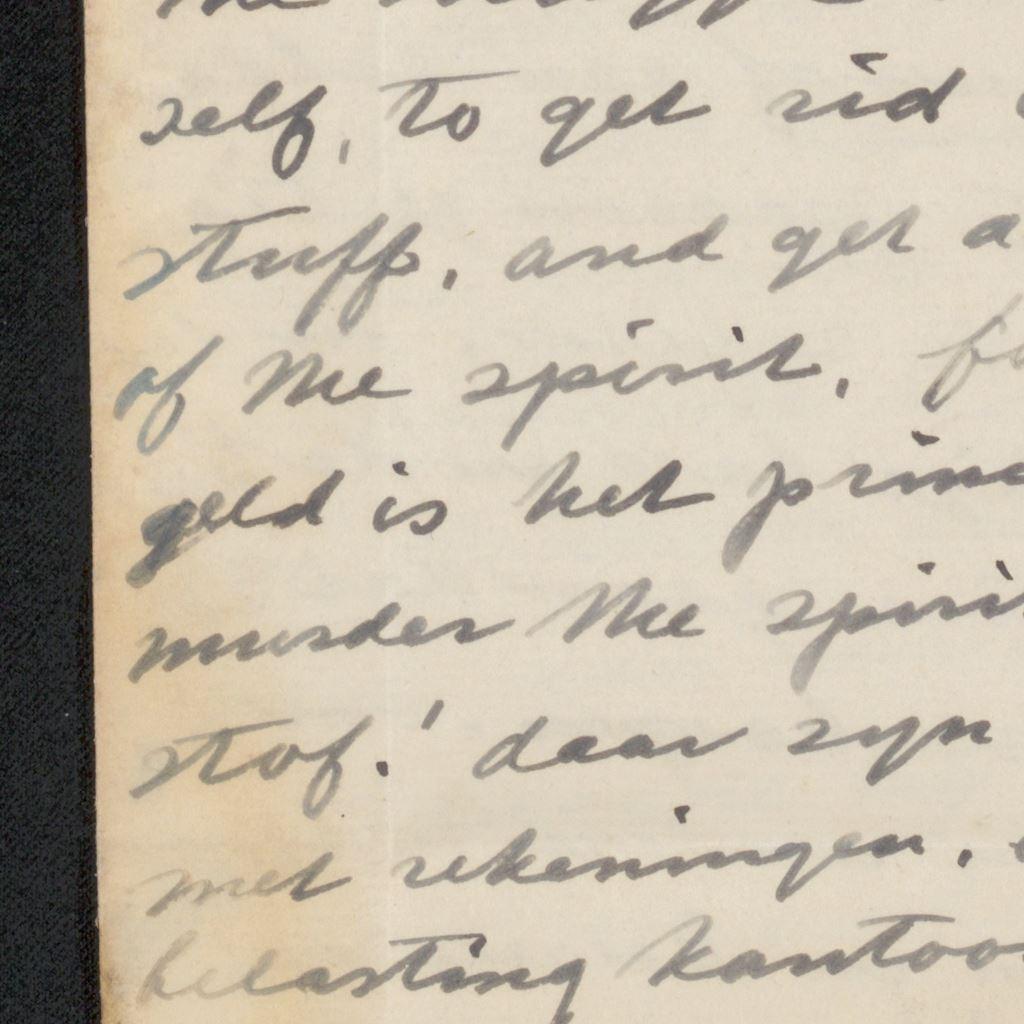 self, to get rid
stuff, and get a
of the spirit.
geld is het princ
murder the spirit
stof! daar zyn
met rekeningen.
belasting kantoo